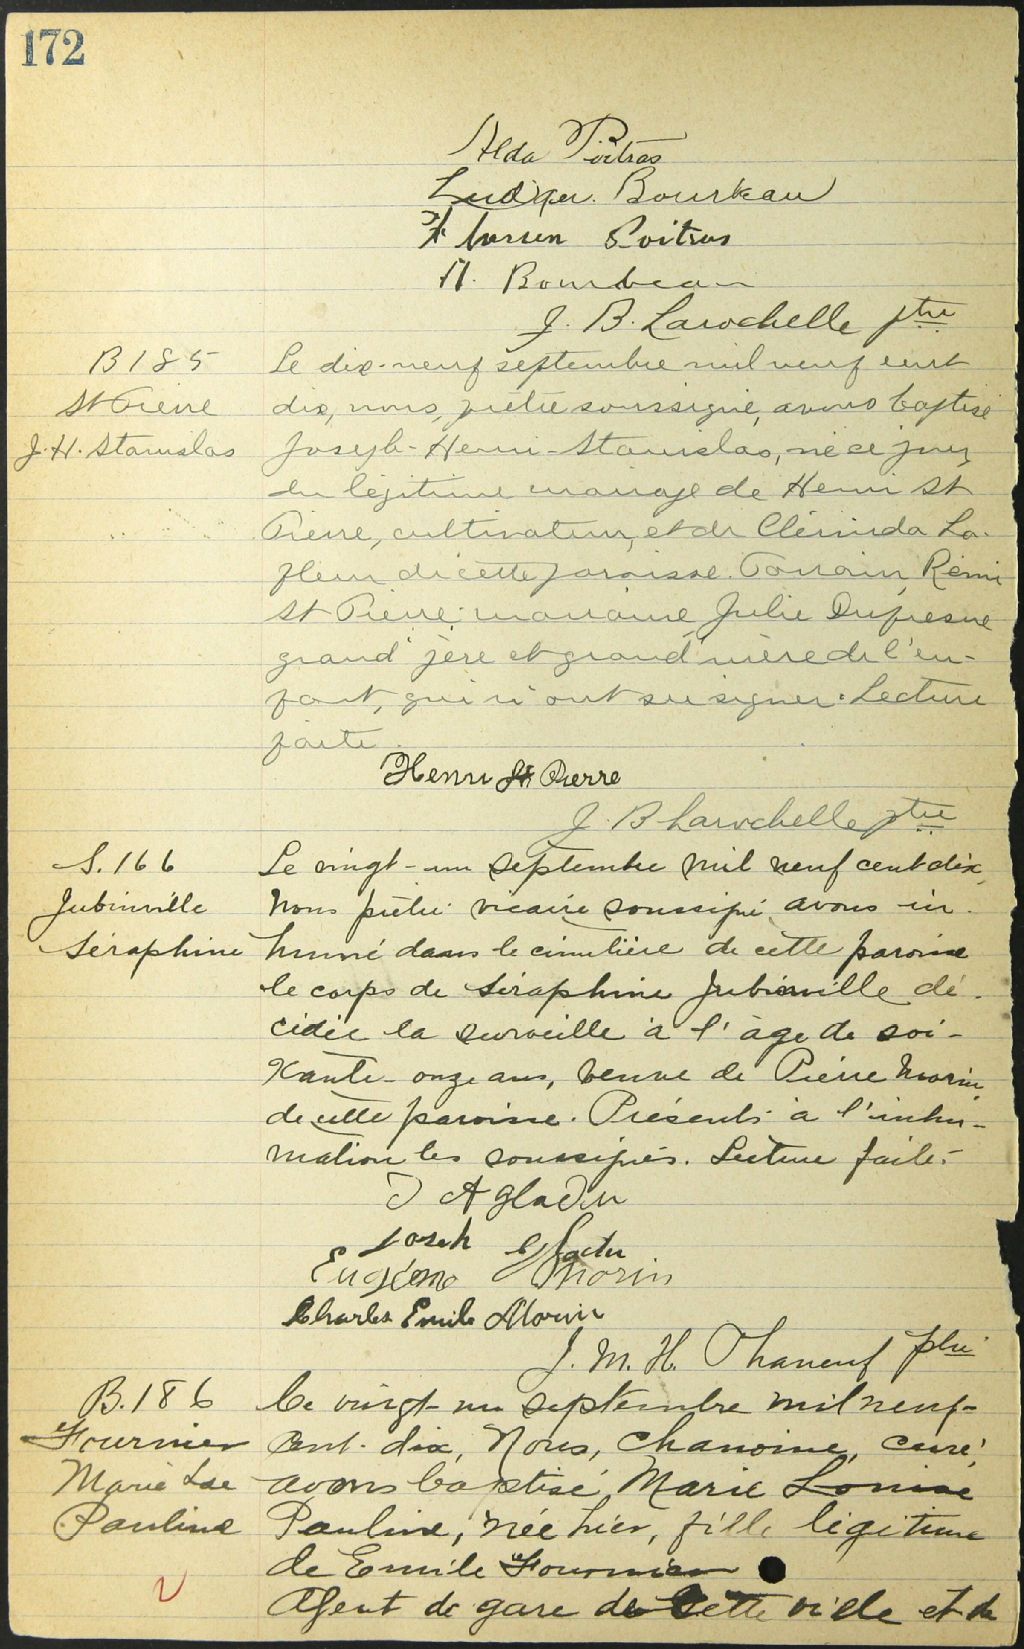 172
Alda Poitras
Ludger Bourbeau
Poitras
A. Bourbeau
J. B. Larochelle ptre
B 185
St Pierre
J. H. Stanislas
Le dix-neuf septembre mil neuf cent
dix, nous, prêtre soussigné, avons baptisé
Joseph-Henri-Stanislas, né ce jour
du légitime mariage de Henri St
Pierre, cultivateur, et de Clérinda La-
fleur de cette paroisse. Parrain, Rémi
St Pierre; marraine Julie Dufresne
grand'père et grand'mère de l'en-
fant, qui n'ont su signer. Lecture
faite.
Henri St Pierre
J. B Larochelle ptre
S. 166
Jubinville
Séraphine
Le vingt-un septembre mil neuf cent dix,
Nous prêtre vicaire soussigné avons in-
humé dans le cimetière de cette paroisse
le corps de Séraphine Jubinville dé-
cédée la surveille à l'âge de soi-
xante-onze ans, veuve de Pierre Morin
de cette paroisse. Présents à l'inhu-
mation les soussignés. Lecture faite.
J A Gladu
Joseph
Eugène Morin
Charles Emile Morin
J. M. H. Phaneuf ptre
B. 186
Fournier
Marie Lse
Pauline
Ce vingt-un septembre mil neuf-
cent-dix, Nous, Chanoine, curé,
avons baptisé Marie Louise
Pauline, née hier, fille légitime
de Emile Fournier
Agent de gare de cette ville et de